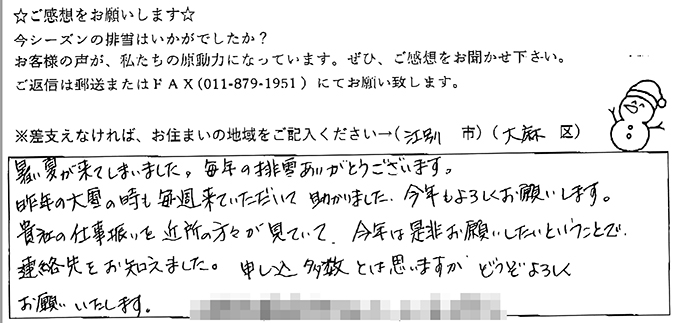 ☆ご感想をお願いします☆
今シーズンの排雪はいかがでしたか?
お客様の声が、私たちの原動力になっています。ぜひ、ご感想をお聞かせ下さい。
ご返信は郵送またはFAX(011-879-1951)にてお願い致します。
※差支えなければ、お住まいの地域をご記入ください→(江別 市)(大麻 区)
暑い夏が来てしまいました。毎年の排雪ありがとうございます。
昨年の大雪の時も毎週来ていただいて助かりました。今年もよろしくお願いします。
貴社の仕事振りを近所の方々が見ていて、今年は是非お願いしたいということで、
連絡先をお知えました。申し込多数とは思いますが どうぞよろしく
お願いいたします。